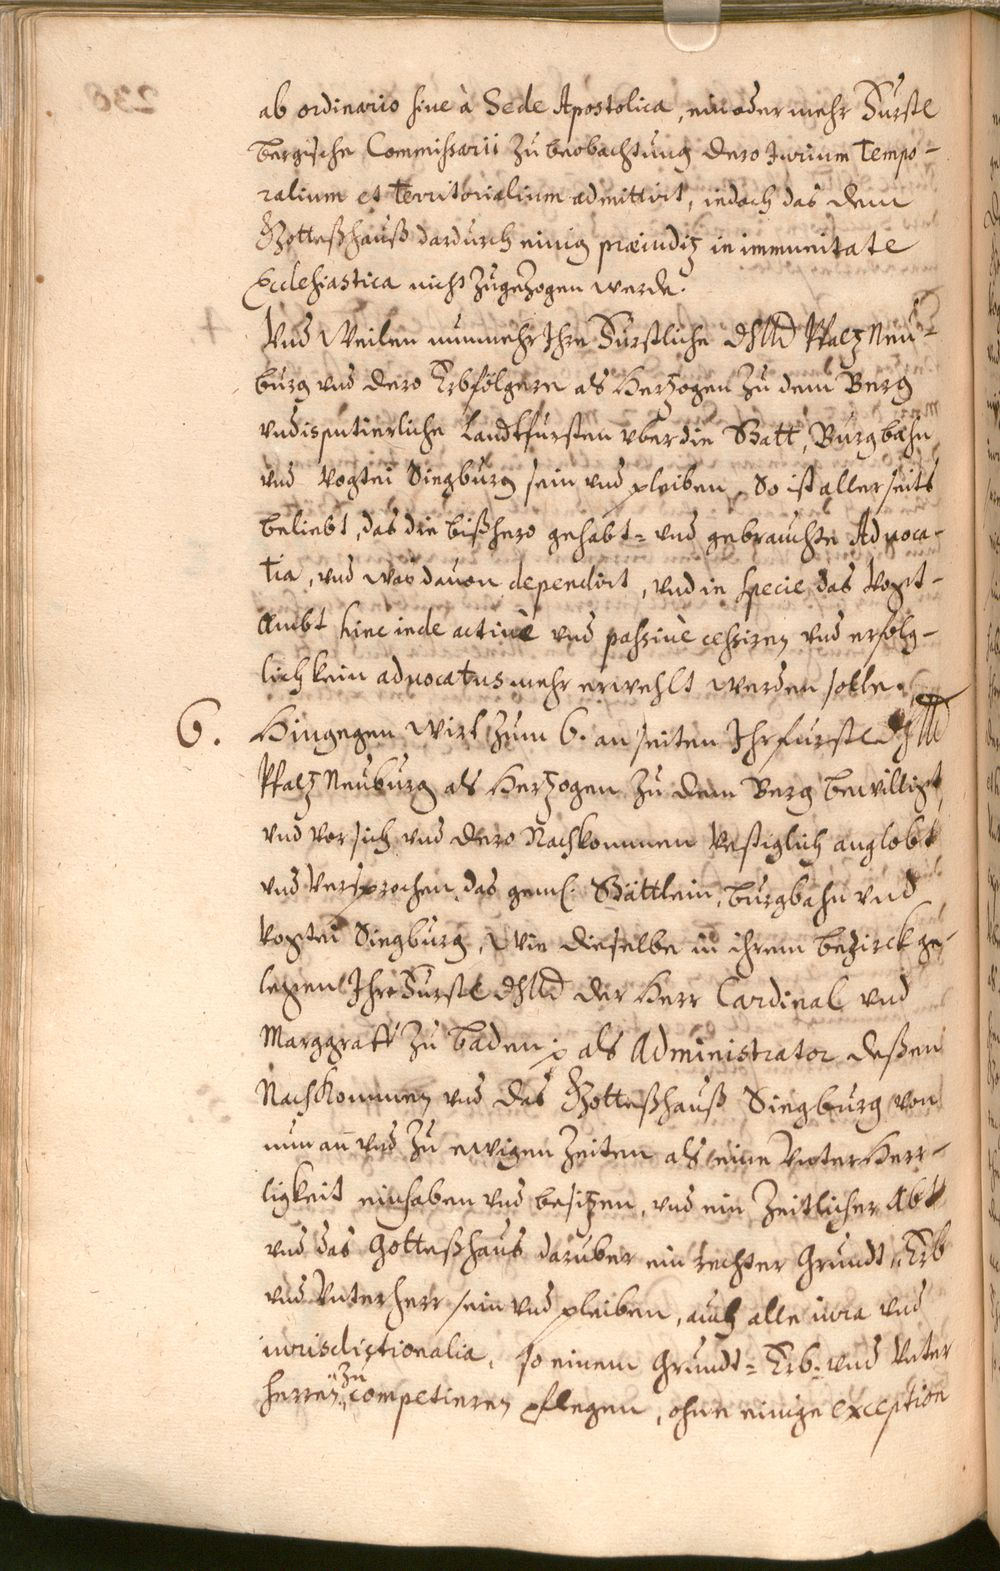 ab ordinario sine à Sede Apostolica, ein oder mehr Fürstl
bergische Commissarii zu beobachtung dero Jurium Tempo-
ralium et Territorialium admittirt, iedoch das dem
Gotteßhauß dardurch einig præiudiz in immunitate
Ecclesiastica nicht zugezogen werde.
Vnd Weilen nunmehr Ihre Fürstliche dhlld Pfaltz Neu-
burg vnd dero Erbfolgere als Hertzogen zu dem Berg
vndisputierliche Landtfürsten vber die Statt, Burgbahn
vnd Vogtei Siegburg sein vnd pleiben, So ist allerseits
beliebt, das die bißhero gehabt- vnd gebrauchte Aduoca-
tia, vnd was dauon dependirt, vnd in specie das Vogt-
Ambt hinc inde actiuè vnd passiuè cessiren vnd erfolg-
lich kein aduocatus mehr erwehlt werden solle.
6. Hingegen wirt zum 6. an seiten Ihr fürstl dhlld
Pfaltz Neuburg als Hertzogen zu dem Berg bewilligt,
vnd vor sich vnd dero Nachkommen Vestiglich anglobt
vnd Versprochen, das geml. Stättlein, burgbahn vnd
Vogtei Siegburg, Wie dieselbe in ihrem bezirck ge-
legen Ihre Fürstl dhlld der Herr Cardinal vnd
Marggraff zu baden als Administrator deßen
Nachkommen vnd das Gotteßhauß Siegburg von
nun an vnd zu ewigen Zeiten als eine Vnter Herr-
ligkeit einhaben vnd besitzen, vnd ein Zeitlicher Abt
vnd das Gotteßhaus daruber ein rechter Grundt, Erb
vnd Vnterherr sein vnd pleiben, auch alle iura vnd
iurisdictionalia, so einem Grundt- Erb- vnd Vnter
herren zu competieren pflegen, ohne einige exception